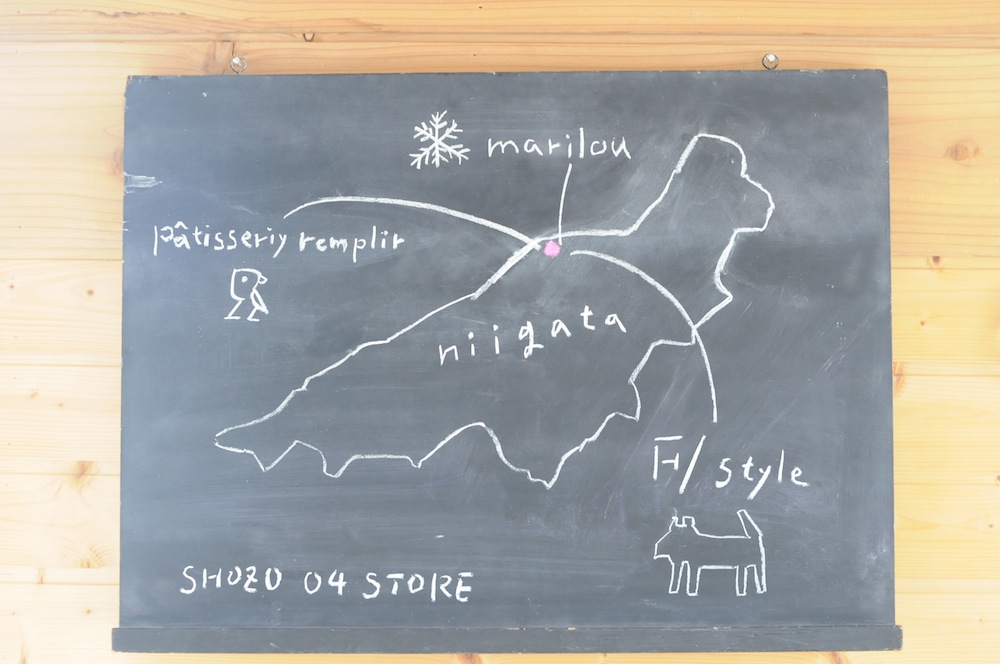 marilou
pâtisseriy remplir
niigata
F/style
SHOZO 04 STORE